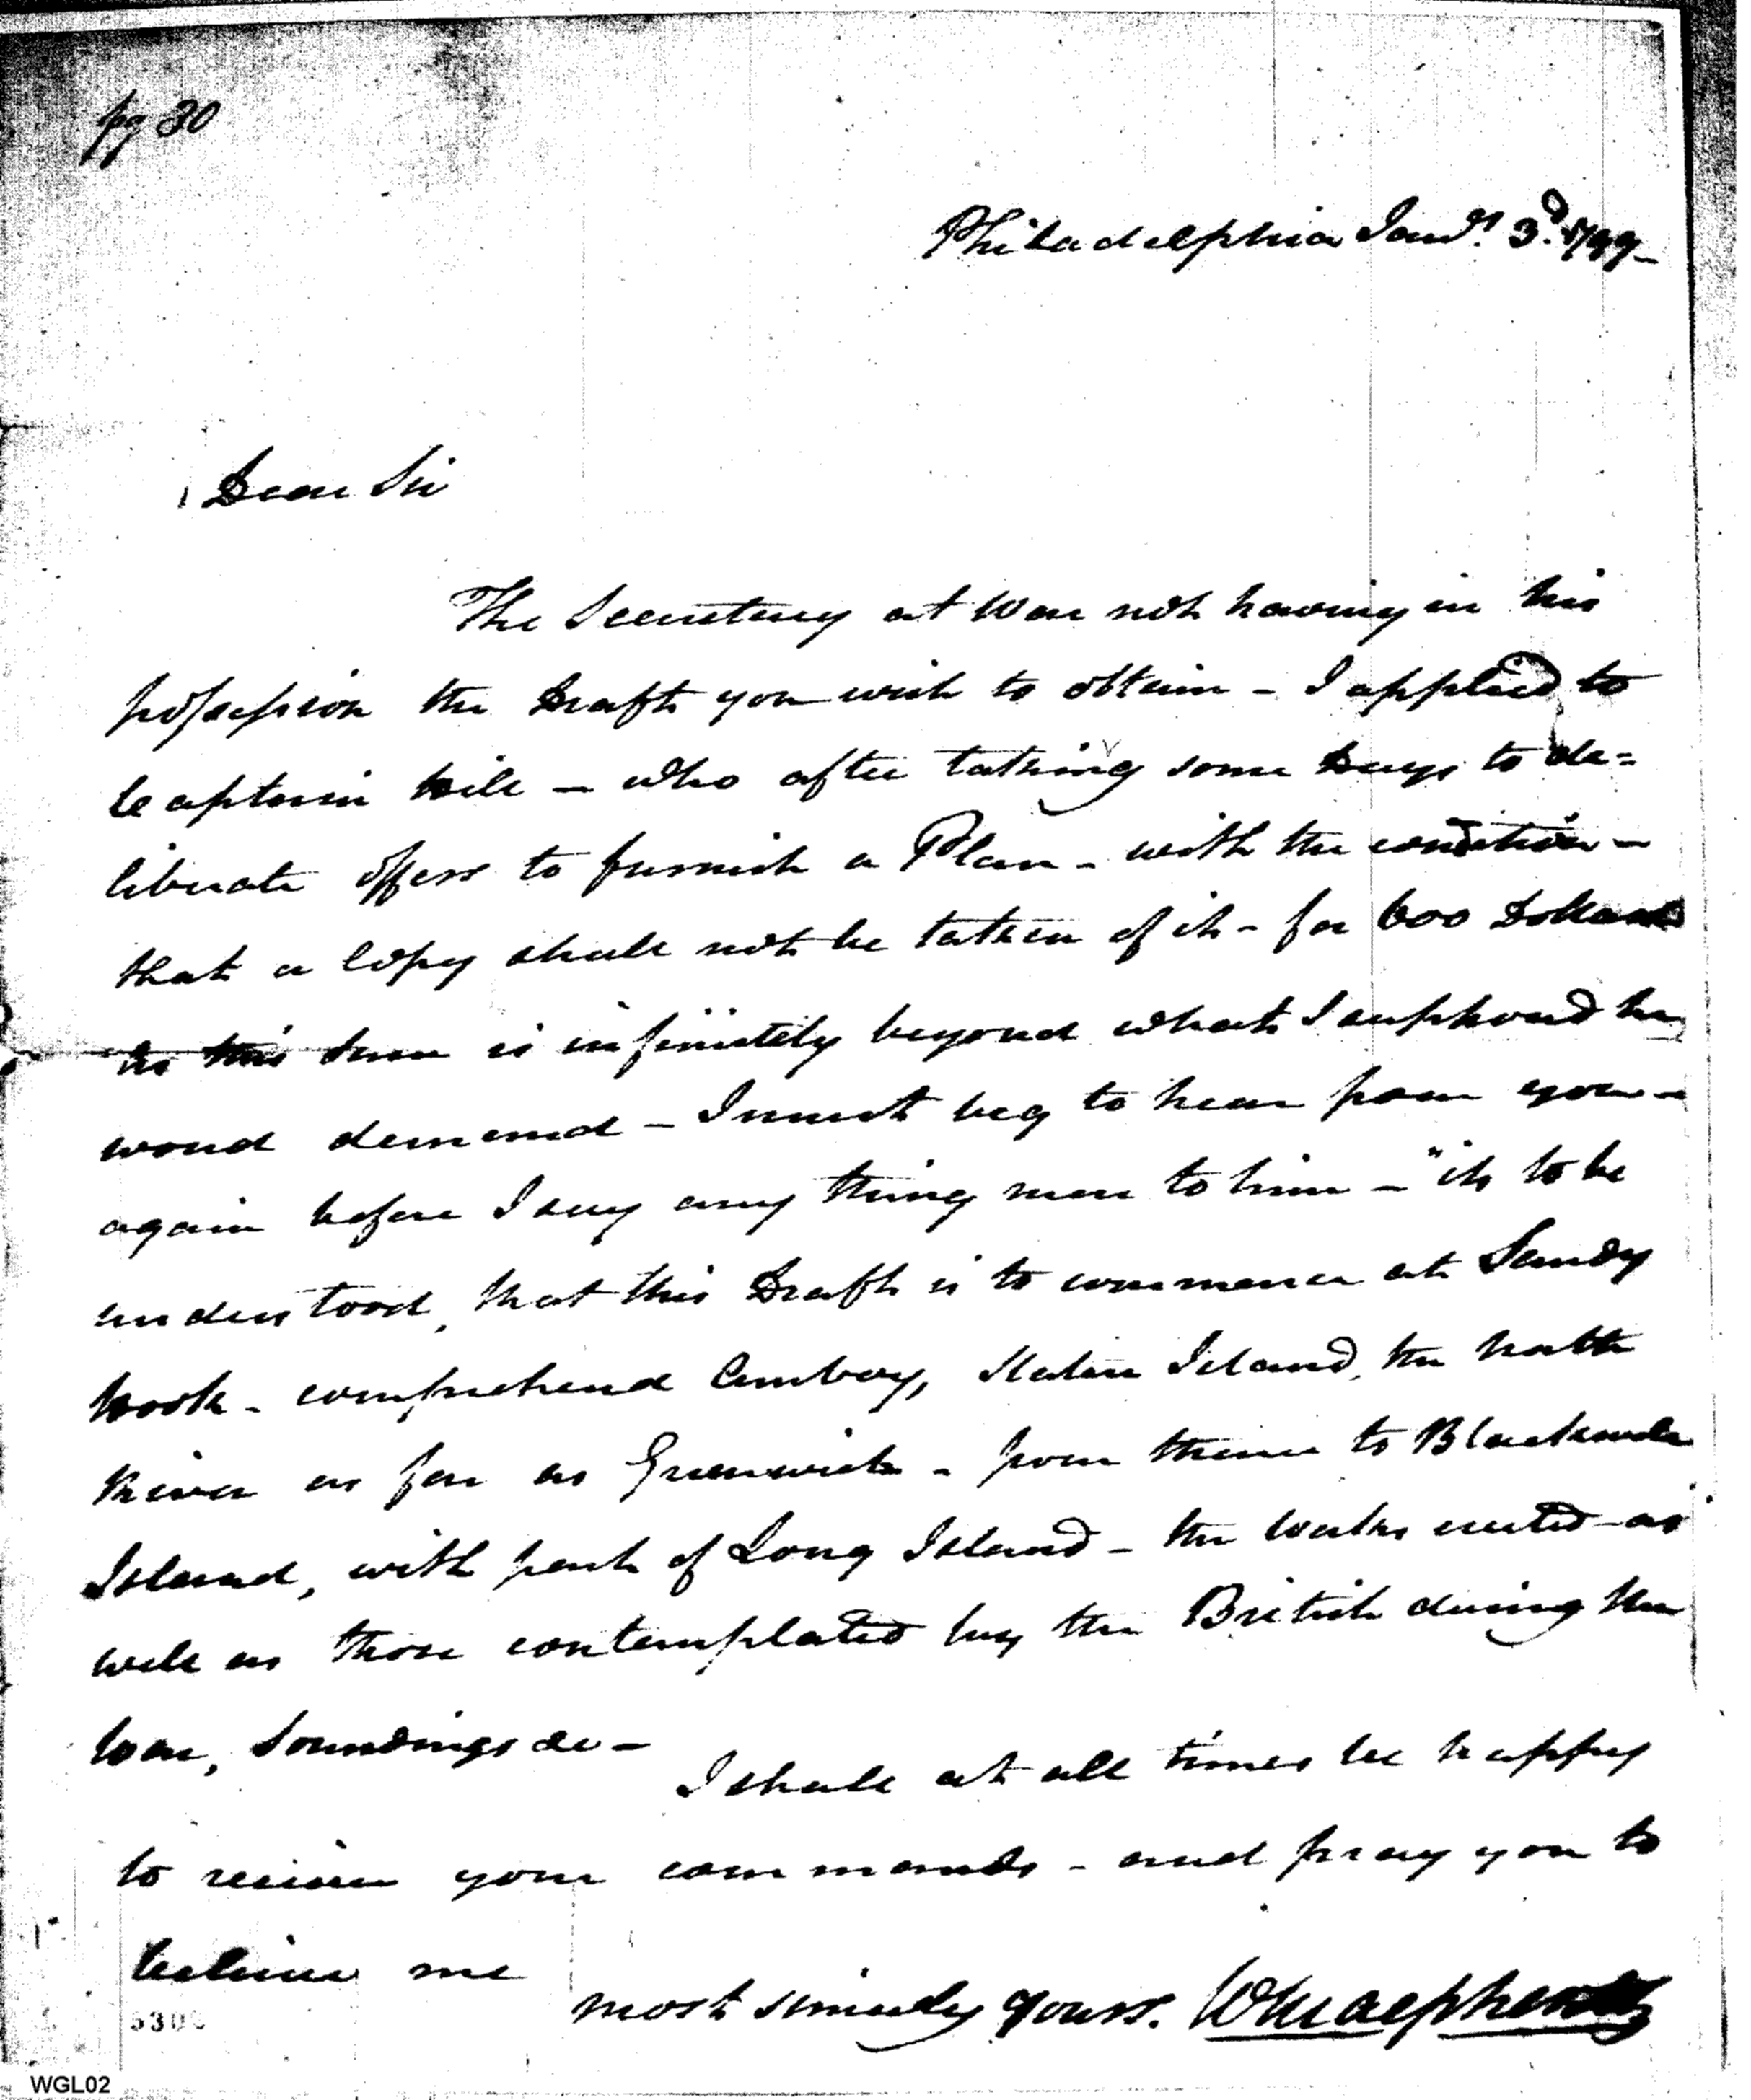 pg 30
Philadelphia Jany. 3d. 1799-
Dear Sir
The Secretary at War not having in his
possession the Draft you wish to obtain - I applied to
Captain Hill - who after taking some Days to de=
liberate offers to furnish a Plan - with the condition -
that a Copy shall not be taken of it - for 600 Dollars
as this sum is infinitely beyond what I supposed he
woud demand - I must beg to hear from you -
again before I say any thing more to him - "it's to be
understood, that this Draft is to commence at Sandy
Hook - comprehend Amboy, Staten Island, the North
River as far as Greenwich - from thence to Blackwells
Island, with part of Long Island - the Works erected as
well as those contemplated by the British during the
War, Soundings &c -
I shall at all times be happy
to receive your commands - and pray you to
believe me
most sincerely yours. WMacpherson
530
WGL02